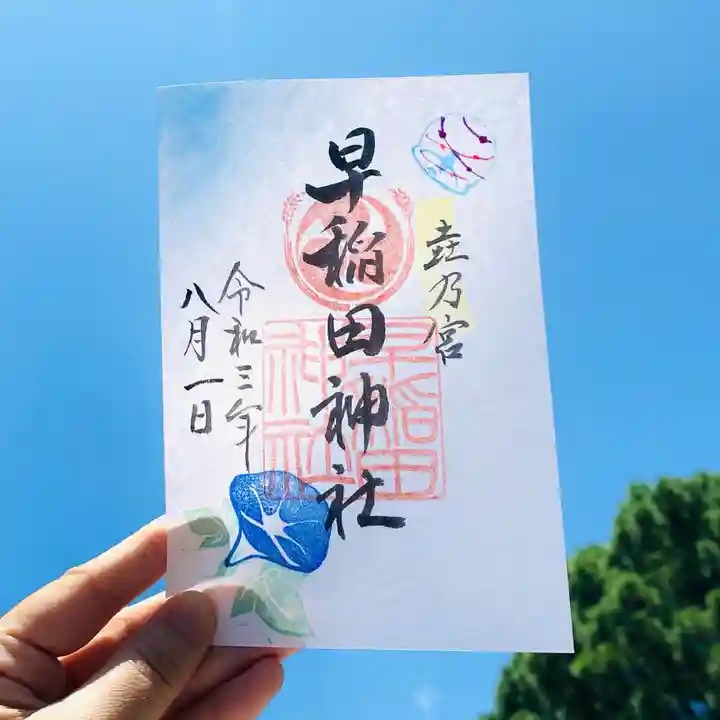 垚乃宮
早稲田神社
令和三年
八月一日
早稲田
神社